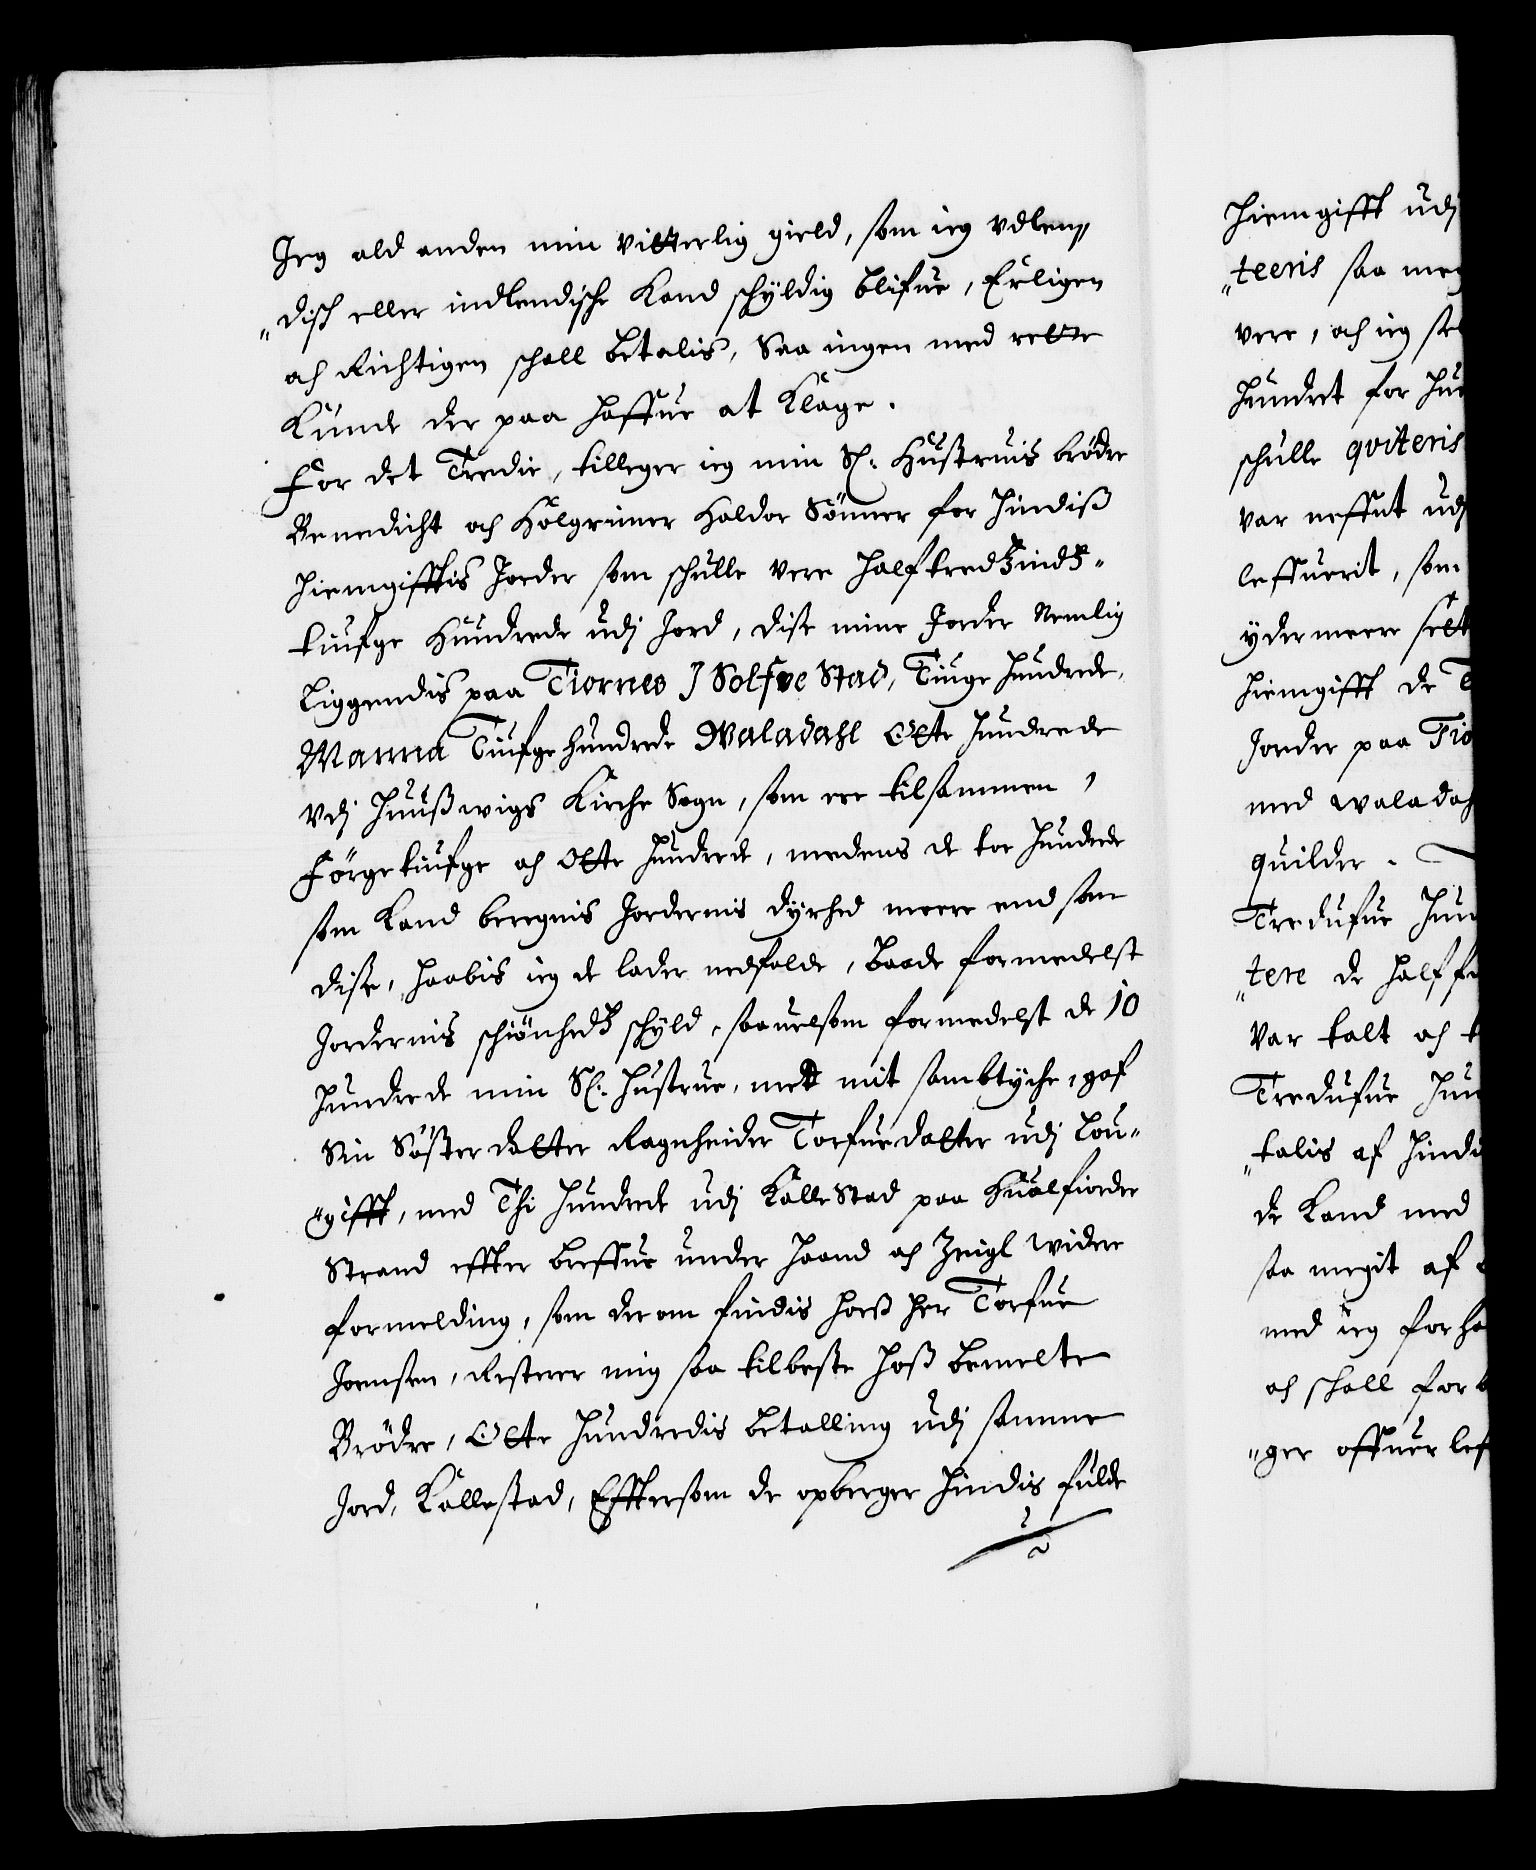 Jeg ald anden min vitterlig gield, som ieg vdlen,,
,,disch eller indlendische kand schyldig blifue, Erligen
och Richtigen schall betalis, Saa ingen med rette
kunde der paa haffue at klage.
For det Tredie, tilleger ieg min Sl: Hustruis brødre
Benedicht och Holgrimer Haldor Sønner for hindiß
hiemgifftis Jorder som schulle vere halftredtzindtz-
tiufge Hundrede udj Jord, dise mine Jorder Nemlig
Liggendis paa Tiornes J Solfve Stad, Tiuge hundrede,
Manna Tiufge hundrede Waladahl Otte hundrede
vdj huußwigs Kirche Sogn, som ere tilsammen,
Førgetiufge och Otte hundrede, medens de toe hundrede
som kand beregnis Jordernis dyrhed meere end som
dise, haabis ieg de lader nedfalde, baade formedelst
Jordernis schiønhedtz schyld, saauelsom formedelst de 10
hundrede min Sl: hustrue, medt mit sambtyche, gaf
Sin Søster datter Ragnheider Torfuedatter udj Lou-
,,gifft, med Thi hundrede udj Kalle Stad paa Hualfiorder
Strand effter breffue under haand och Zeigl widere
formelding, som der om findis hoeß her Torfue
Joensen, Resterer mig saa tilbeste hoß bemelte
Brødre, Otte hundredis betalling udj samme
Jord, Kallestad, Efftersom de opberger hindis fulde
hiemgifft udj
,,teeris saa meg
vere, och ieg
hundret for
schulle qviteris
var neffnt udj
leffuerit, som
ydermeere
hiemgifft de
Jorder paa Tio
med walada
quilder.
Tredufue
,,tere de half
var talt och
Tredufue
,,talis af
de kand med
saa megit af
med ieg forha
och schall for
,,ger offuer